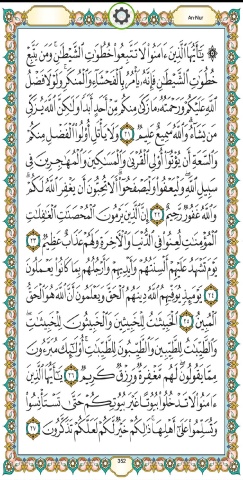 An-Nur
۞ يَٰٓأَيُّهَا ٱلَّذِينَ ءَامَنُوا۟ لَا تَتَّبِعُوا۟ خُطُوَٰتِ ٱلشَّيْطَٰنِ وَمَن يَتَّبِعْ
خُطُوَٰتِ ٱلشَّيْطَٰنِ فَإِنَّهُۥ يَأْمُرُ بِٱلْفَحْشَآءِ وَٱلْمُنكَرِ وَلَوْلَا فَضْلُ
ٱللَّهِ عَلَيْكُمْ وَرَحْمَتُهُۥ مَا زَكَىٰ مِنكُم مِّنْ أَحَدٍ أَبَدًا وَلَٰكِنَّ ٱللَّهَ يُزَكِّى
مَن يَشَآءُ وَٱللَّهُ سَمِيعٌ عَلِيمٌ ٢١ وَلَا يَأْتَلِ أُو۟لُوا۟ ٱلْفَضْلِ مِنكُمْ
وَٱلسَّعَةِ أَن يُؤْتُوٓا۟ أُو۟لِى ٱلْقُرْبَىٰ وَٱلْمَسَٰكِينَ وَٱلْمُهَٰجِرِينَ فِى
سَبِيلِ ٱللَّهِ وَلْيَعْفُوا۟ وَلْيَصْفَحُوٓا۟ أَلَا تُحِبُّونَ أَن يَغْفِرَ ٱللَّهُ لَكُمْ
وَٱللَّهُ غَفُورٌ رَّحِيمٌ ٢٢ إِنَّ ٱلَّذِينَ يَرْمُونَ ٱلْمُحْصَنَٰتِ ٱلْغَٰفِلَٰتِ
ٱلْمُؤْمِنَٰتِ لُعِنُوا۟ فِى ٱلدُّنْيَا وَٱلْءَاخِرَةِ وَلَهُمْ عَذَابٌ عَظِيمٌ ٢٣
يَوْمَ تَشْهَدُ عَلَيْهِمْ أَلْسِنَتُهُمْ وَأَيْدِيهِمْ وَأَرْجُلُهُم بِمَا كَانُوا۟ يَعْمَلُونَ
٢٤ يَوْمَئِذٍ يُوَفِّيهِمُ ٱللَّهُ دِينَهُمُ ٱلْحَقَّ وَيَعْلَمُونَ أَنَّ ٱللَّهَ هُوَ ٱلْحَقُّ
ٱلْمُبِينُ ٢٥ ٱلْخَبِيثَٰتُ لِلْخَبِيثِينَ وَٱلْخَبِيثُونَ لِلْخَبِيثَٰتِ
وَٱلطَّيِّبَٰتُ لِلطَّيِّبِينَ وَٱلطَّيِّبُونَ لِلطَّيِّبَٰتِ أُو۟لَٰٓئِكَ مُبَرَّءُونَ
مِمَّا يَقُولُونَ لَهُم مَّغْفِرَةٌ وَرِزْقٌ كَرِيمٌ ٢٦ يَٰٓأَيُّهَا ٱلَّذِينَ
ءَامَنُوا۟ لَا تَدْخُلُوا۟ بُيُوتًا غَيْرَ بُيُوتِكُمْ حَتَّىٰ تَسْتَأْنِسُوا۟
وَتُسَلِّمُوا۟ عَلَىٰٓ أَهْلِهَا ذَٰلِكُمْ خَيْرٌ لَّكُمْ لَعَلَّكُمْ تَذَكَّرُونَ ٢٧
352